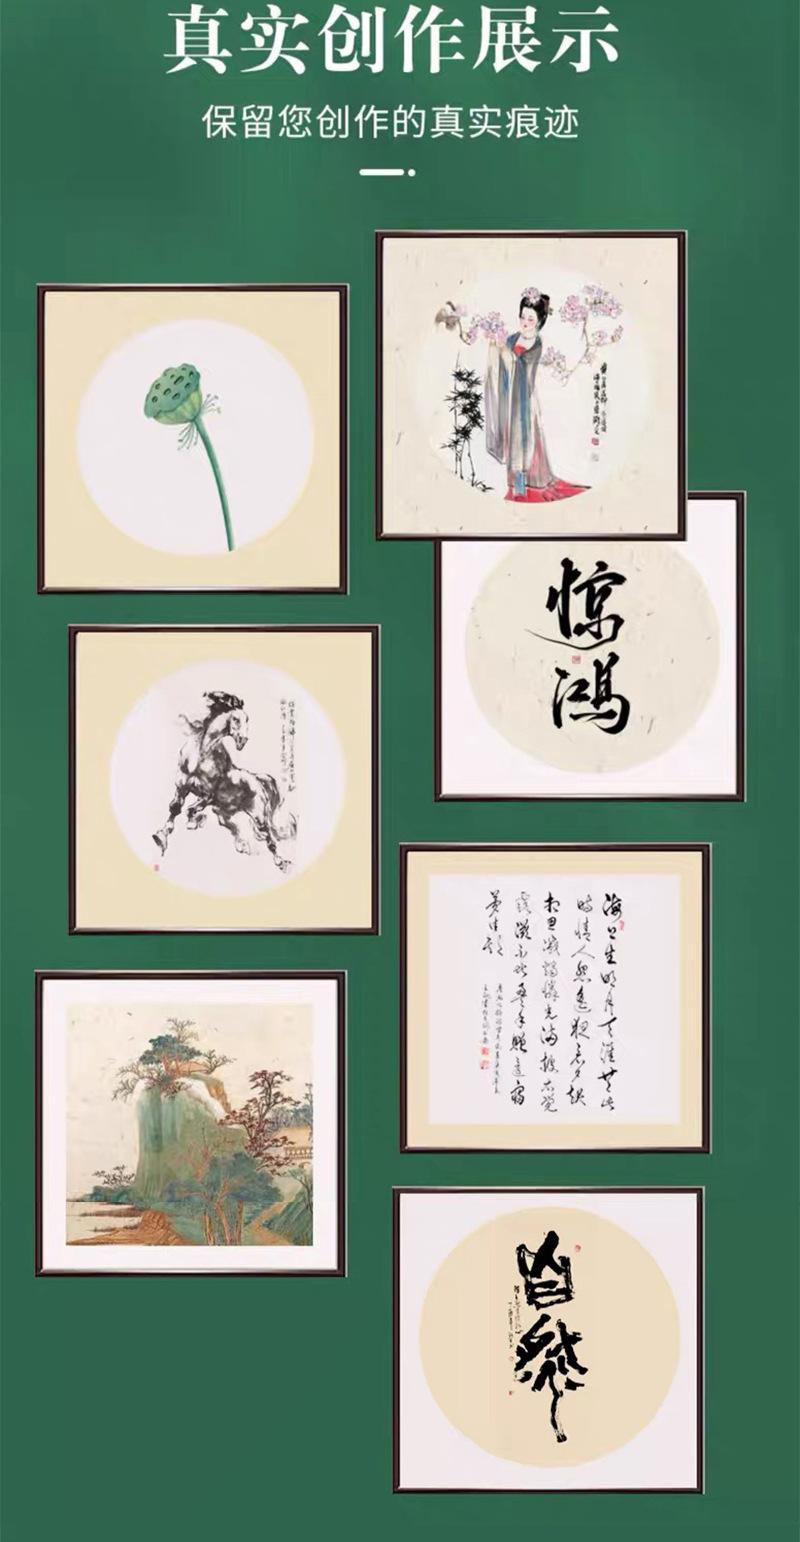 真实创作展示
保留您创作的真实痕迹
惊
鸿
海上生明月天涯共此
时情人怨遥夜竟夕起
相思灭烛怜光满披衣觉
露滋不堪盈手赠还寝
梦佳期
自然